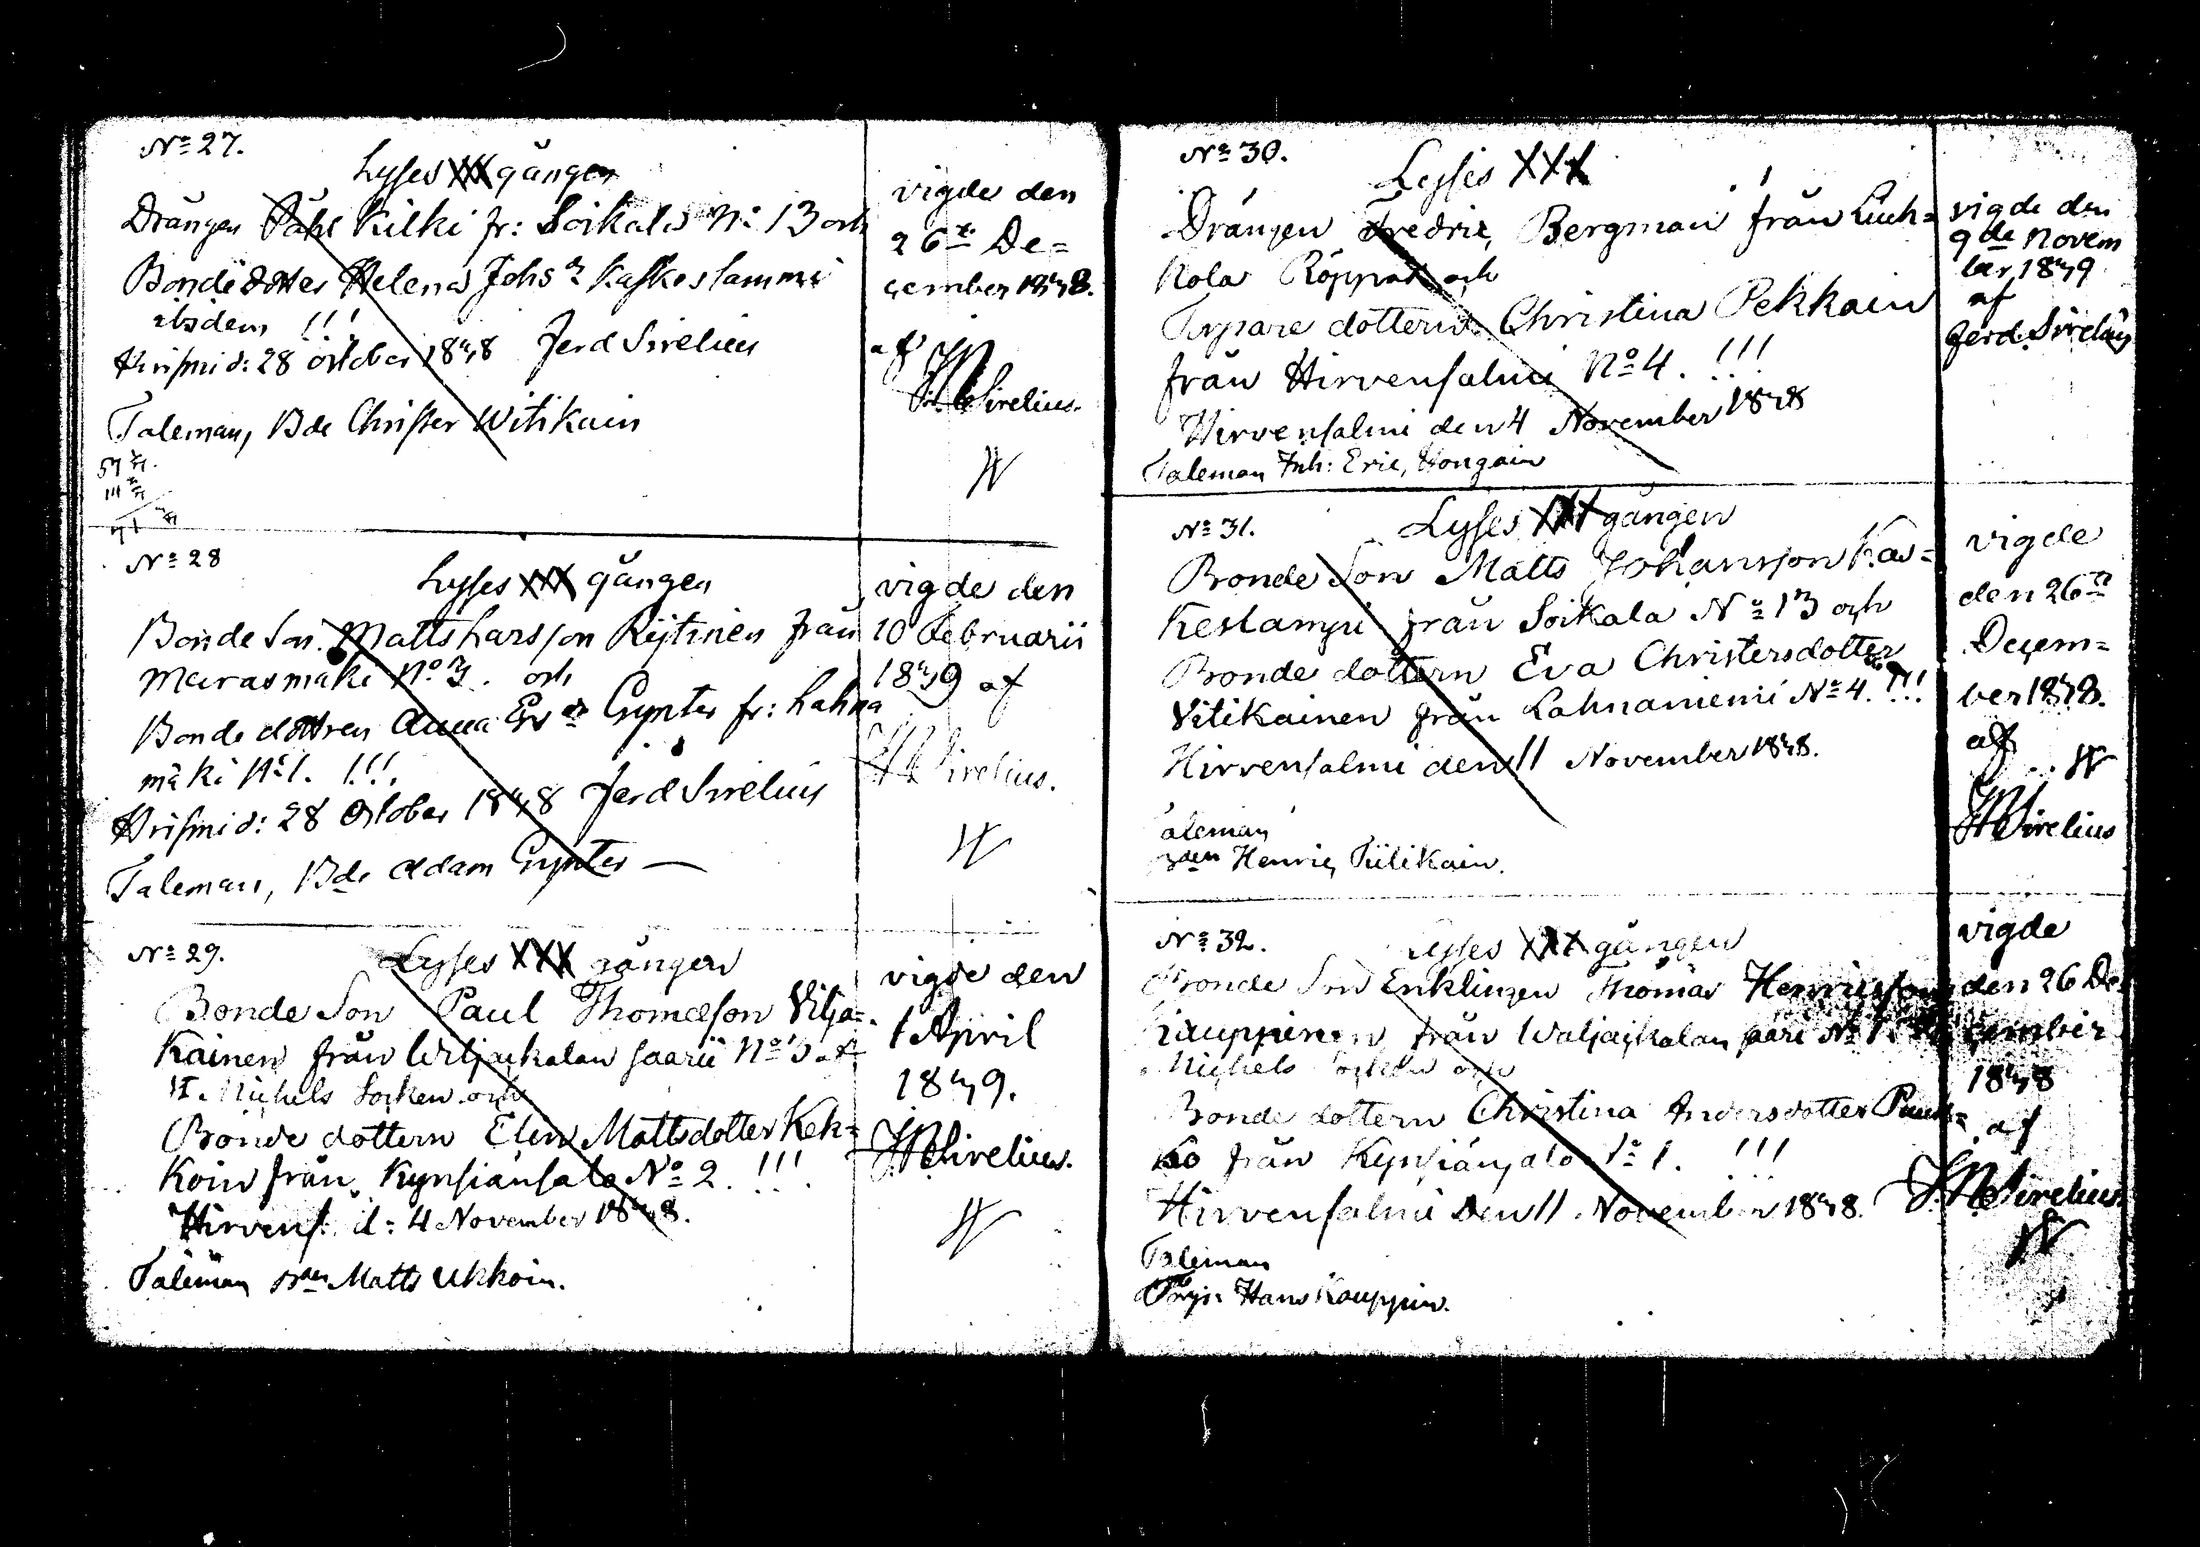 No 27.
Lyses XXX gången
Drängen Påhl Kilki fr: Soikala No 13 och
Bondedotter Helena Johs dr Kaskeslammi
ibidem !!!
Hirfmi d: 28 October 1848 Ferd Sirelius
Taleman, Bde Christer Witikain
vigde den
26te De=
cember 1848.
af
Sirelius.
No 28
Lyses XXX gången
Bonde Son. Matts Larsson Rijtinen från
Meirasmäki No 3. och
Bonde dottren Anna Ers dr Gynter fr: Lahna
mäki No 1. !!!
Hrifmi d: 28 October 1848 Ferd Sirelius
Taleman, Bde Adam Gynter —
vigde den
10 Februarii
1849 af
Sirelius.
No 29.
Lyses XXX gången
Bonde Son Paul Thomasson Vilja=
kainen från Wiljakalan saarii No 3 af
St. Michels Socken och
Bonde dottern Elin Mattsdotter Kek=
koin från Kynsiänsalo No 2. !!!
Hirvens. d: 4 November 1848.
Taleman Bden Matts Ukkoin.
vigde den
1 April
1849.
Sirelius.
No 30.
Lyses XXX
Drängen Fredric Bergman från Luh=
kola Röppat och
Torpare dottern Christina Pekkain
från Hirvensalmi No 4. !!!
Hirvensalmi den 4 November 1848
Taleman Inh: Eric Hongain
vigde den
9de Novem
ber 1849
af
Ferd. Sirelius
No 31.
Lyses XXX gången
Bonde Son Matts Johansson Kas=
keslampi från Soikala No 13 och
Bonde dottern Eva Christersdotter
Vitikainen från Lahnaniemi No 4. !!!
Hirvensalmi den 11 November 1848.
Taleman
Bden Henric Tiilikain.
vigde
den 26te
Decem=
ber 1848.
af
Sirelius
No 32.
Lyses XXX gången
Bonde Son Enklingen Thomas Henricsson
Kauppinen från Waljakalan saari No 1
Michels Socken och
Bonde dottern Christina Andersdotter Pauk=
ko från Kynsiänsalo No 1. !!!
Hirvensalmi den 11 November 1848.
Taleman
Torp: Hans Kauppin.
vigde
den 26 De=
cember
1848
af
Sirelius